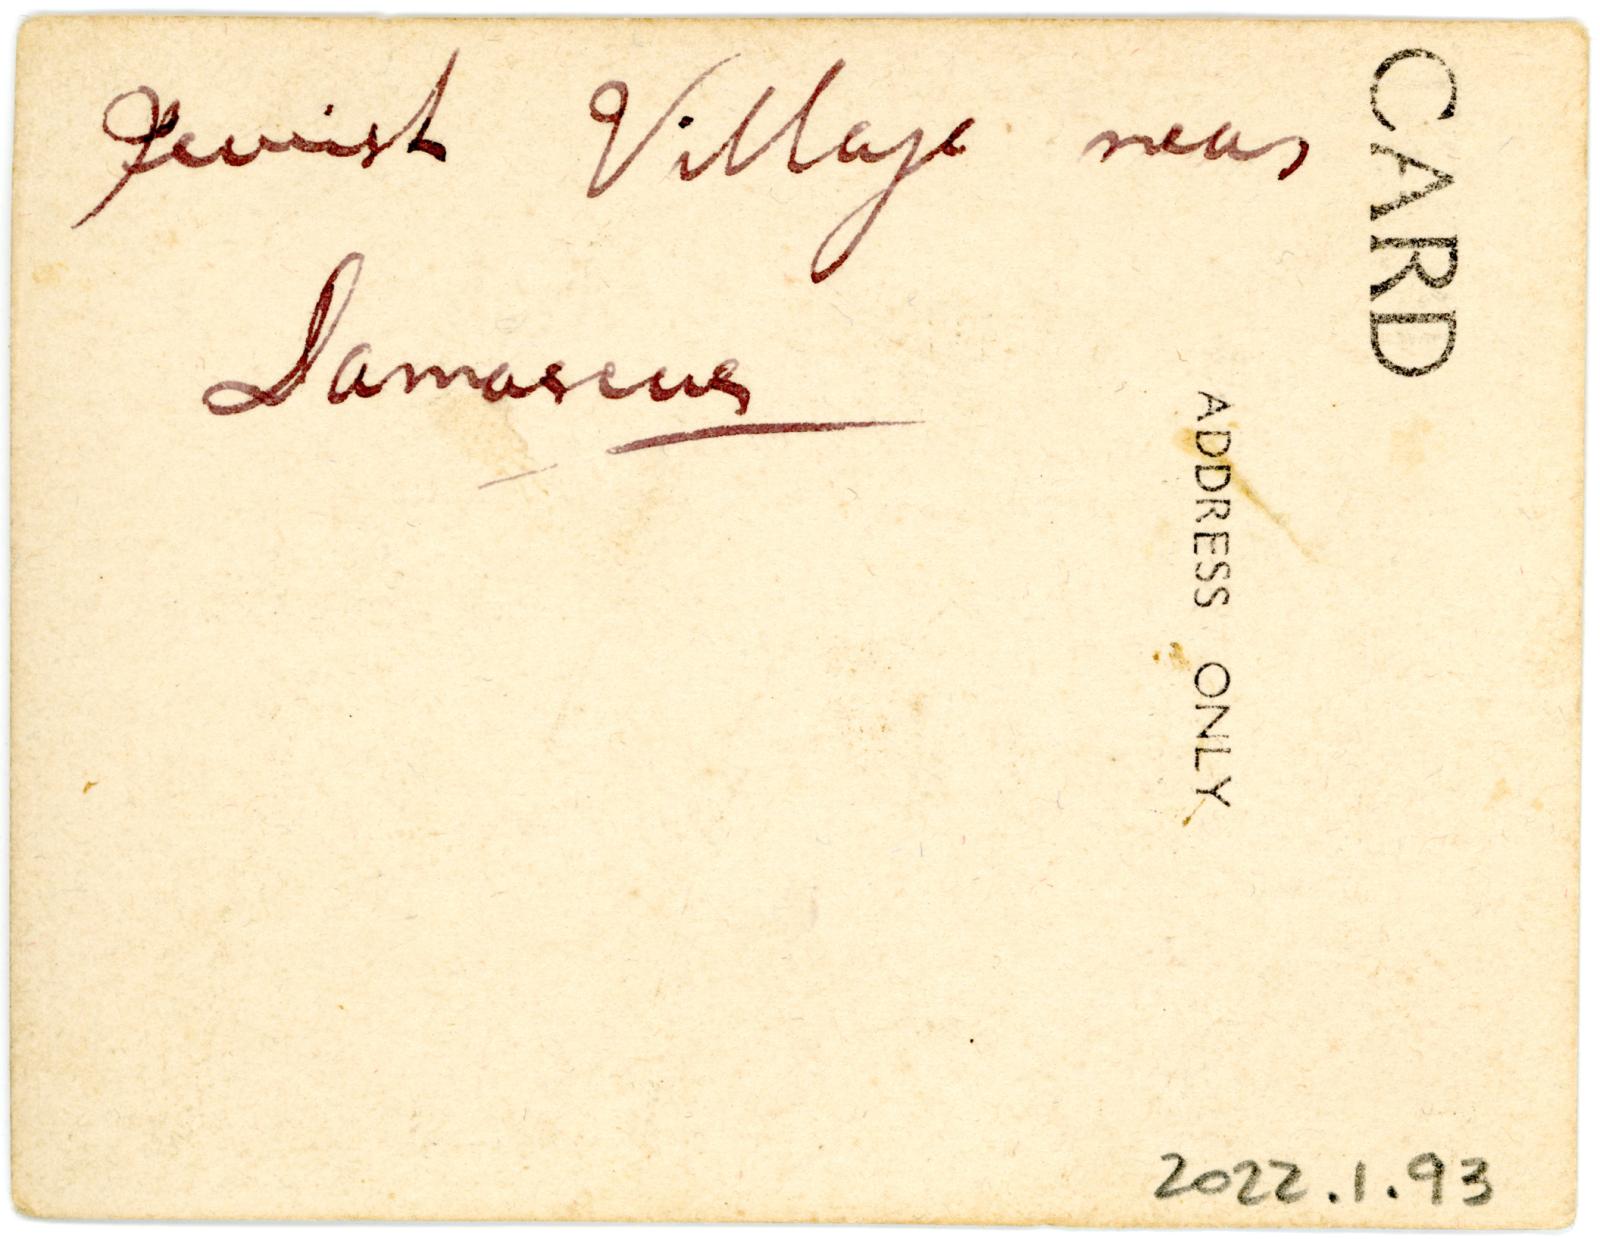 Jewish Village near
Damascus
CARD
ADDRESS ONLY
2022.1.93